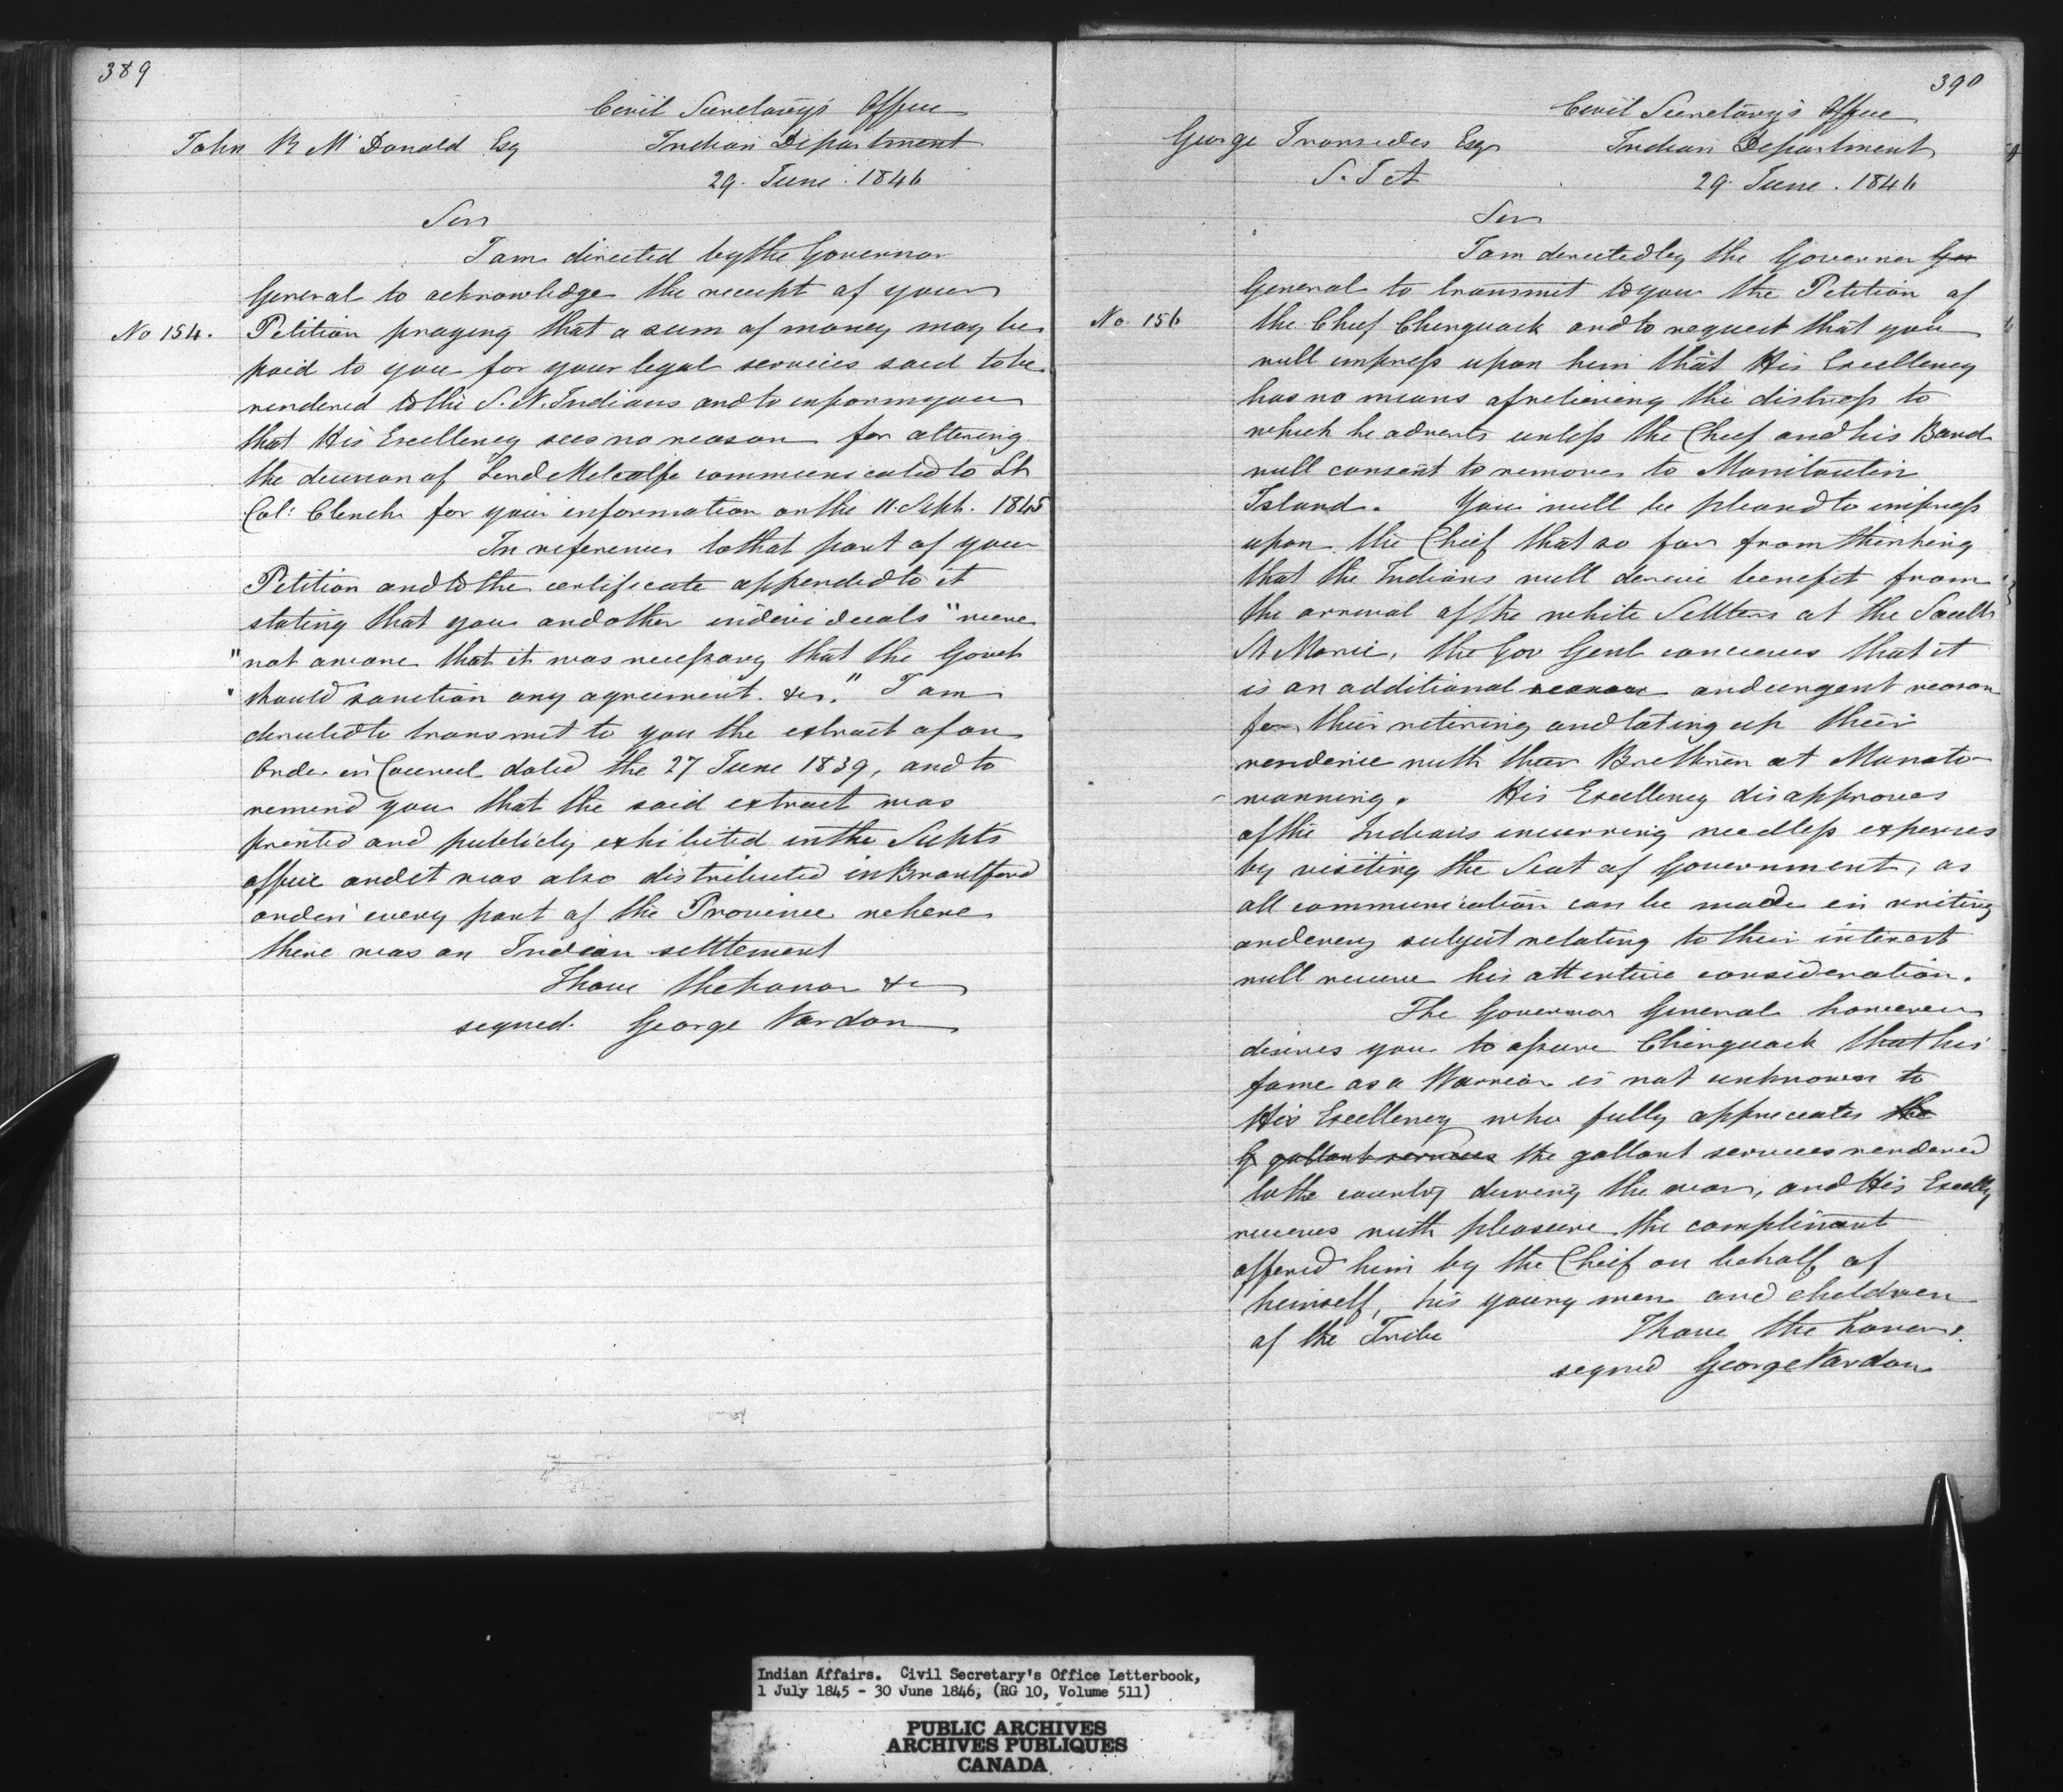 389
Civil Secretary's Office
John B McDonald Esq Indian Department
29. June. 1846
Sir
I am directed by the Governor
General to acknowledge the receipt of your
No 154. Petition praying that a sum of money may be
paid to you for your legal services said to be
rendered to the S. N. Indians and to inform you
that His Excellency sees no reason for altering
the decision of Lord Metcalfe communicated to Lt
Col: Clench for your information on the 11. Sept. 1845
In reference to that part of your
Petition and to the certificate appended to it
stating that you and other individuals "were
"not aware that it was necessary that the Govt
" should sanction any agreement. &c." I am
directed to transmit to you the extract of an
Order in Council dated the 27 June 1839, and to
remind you that the said extract was
printed and publicly exhibited in the Supts
office and it was also distributed in Brantford
and in every part of the Province where
there was an Indian settlement
I have the honor &c
signed. George Vardon
390
Civil Secretary's Office
George Ironsides Esqr Indian Department
S. I A 29. June. 1846
Sir
I am directed by the Governor Gen
General to transmit to you the Petition of
No. 156 the Chief Chinguack and to request that you
will impress upon him that His Excellency
has no means of relieving the distress to
which he adverts unless the Chief and his Band
will consent to remove to Manitoulin
Island. You will be pleased to impress
upon the Cheif that so far from thinking
that the Indians will derive benefit from
the arrival of the white Settlers at the Saulte
St Marie, the Gov Genl conceives that it
is an additional reason and urgent reason
for their retiring and taking up their
residence with their Brethren at Manato-
-wanning. His Excellency disapproves
of the Indians incurring needless expenses
by visiting the Seat of Government, as
all communication can be made in writing
and every subject relating to their interest
will receive his attentive consideration.
The Governor General however
desires you to assure Chinguack that his
fame as a Warrior is not unknown to
His Excellency who fully appreciates the
gallant services the gallant services rendered
to the country during the war, and His Excelly
receives with pleasure the compliment
offered him by the Cheif on behalf of
himself, his young men and children
of the Tribe I have the honor &.
signed George Vardon
Indian Affairs. Civil Secretary's Office Letterbook,
1 July 1845 - 30 June 1846, (RG 10, Volume 511)
PUBLIC ARCHIVES
ARCHIVES PUBLIQUES
CANADA